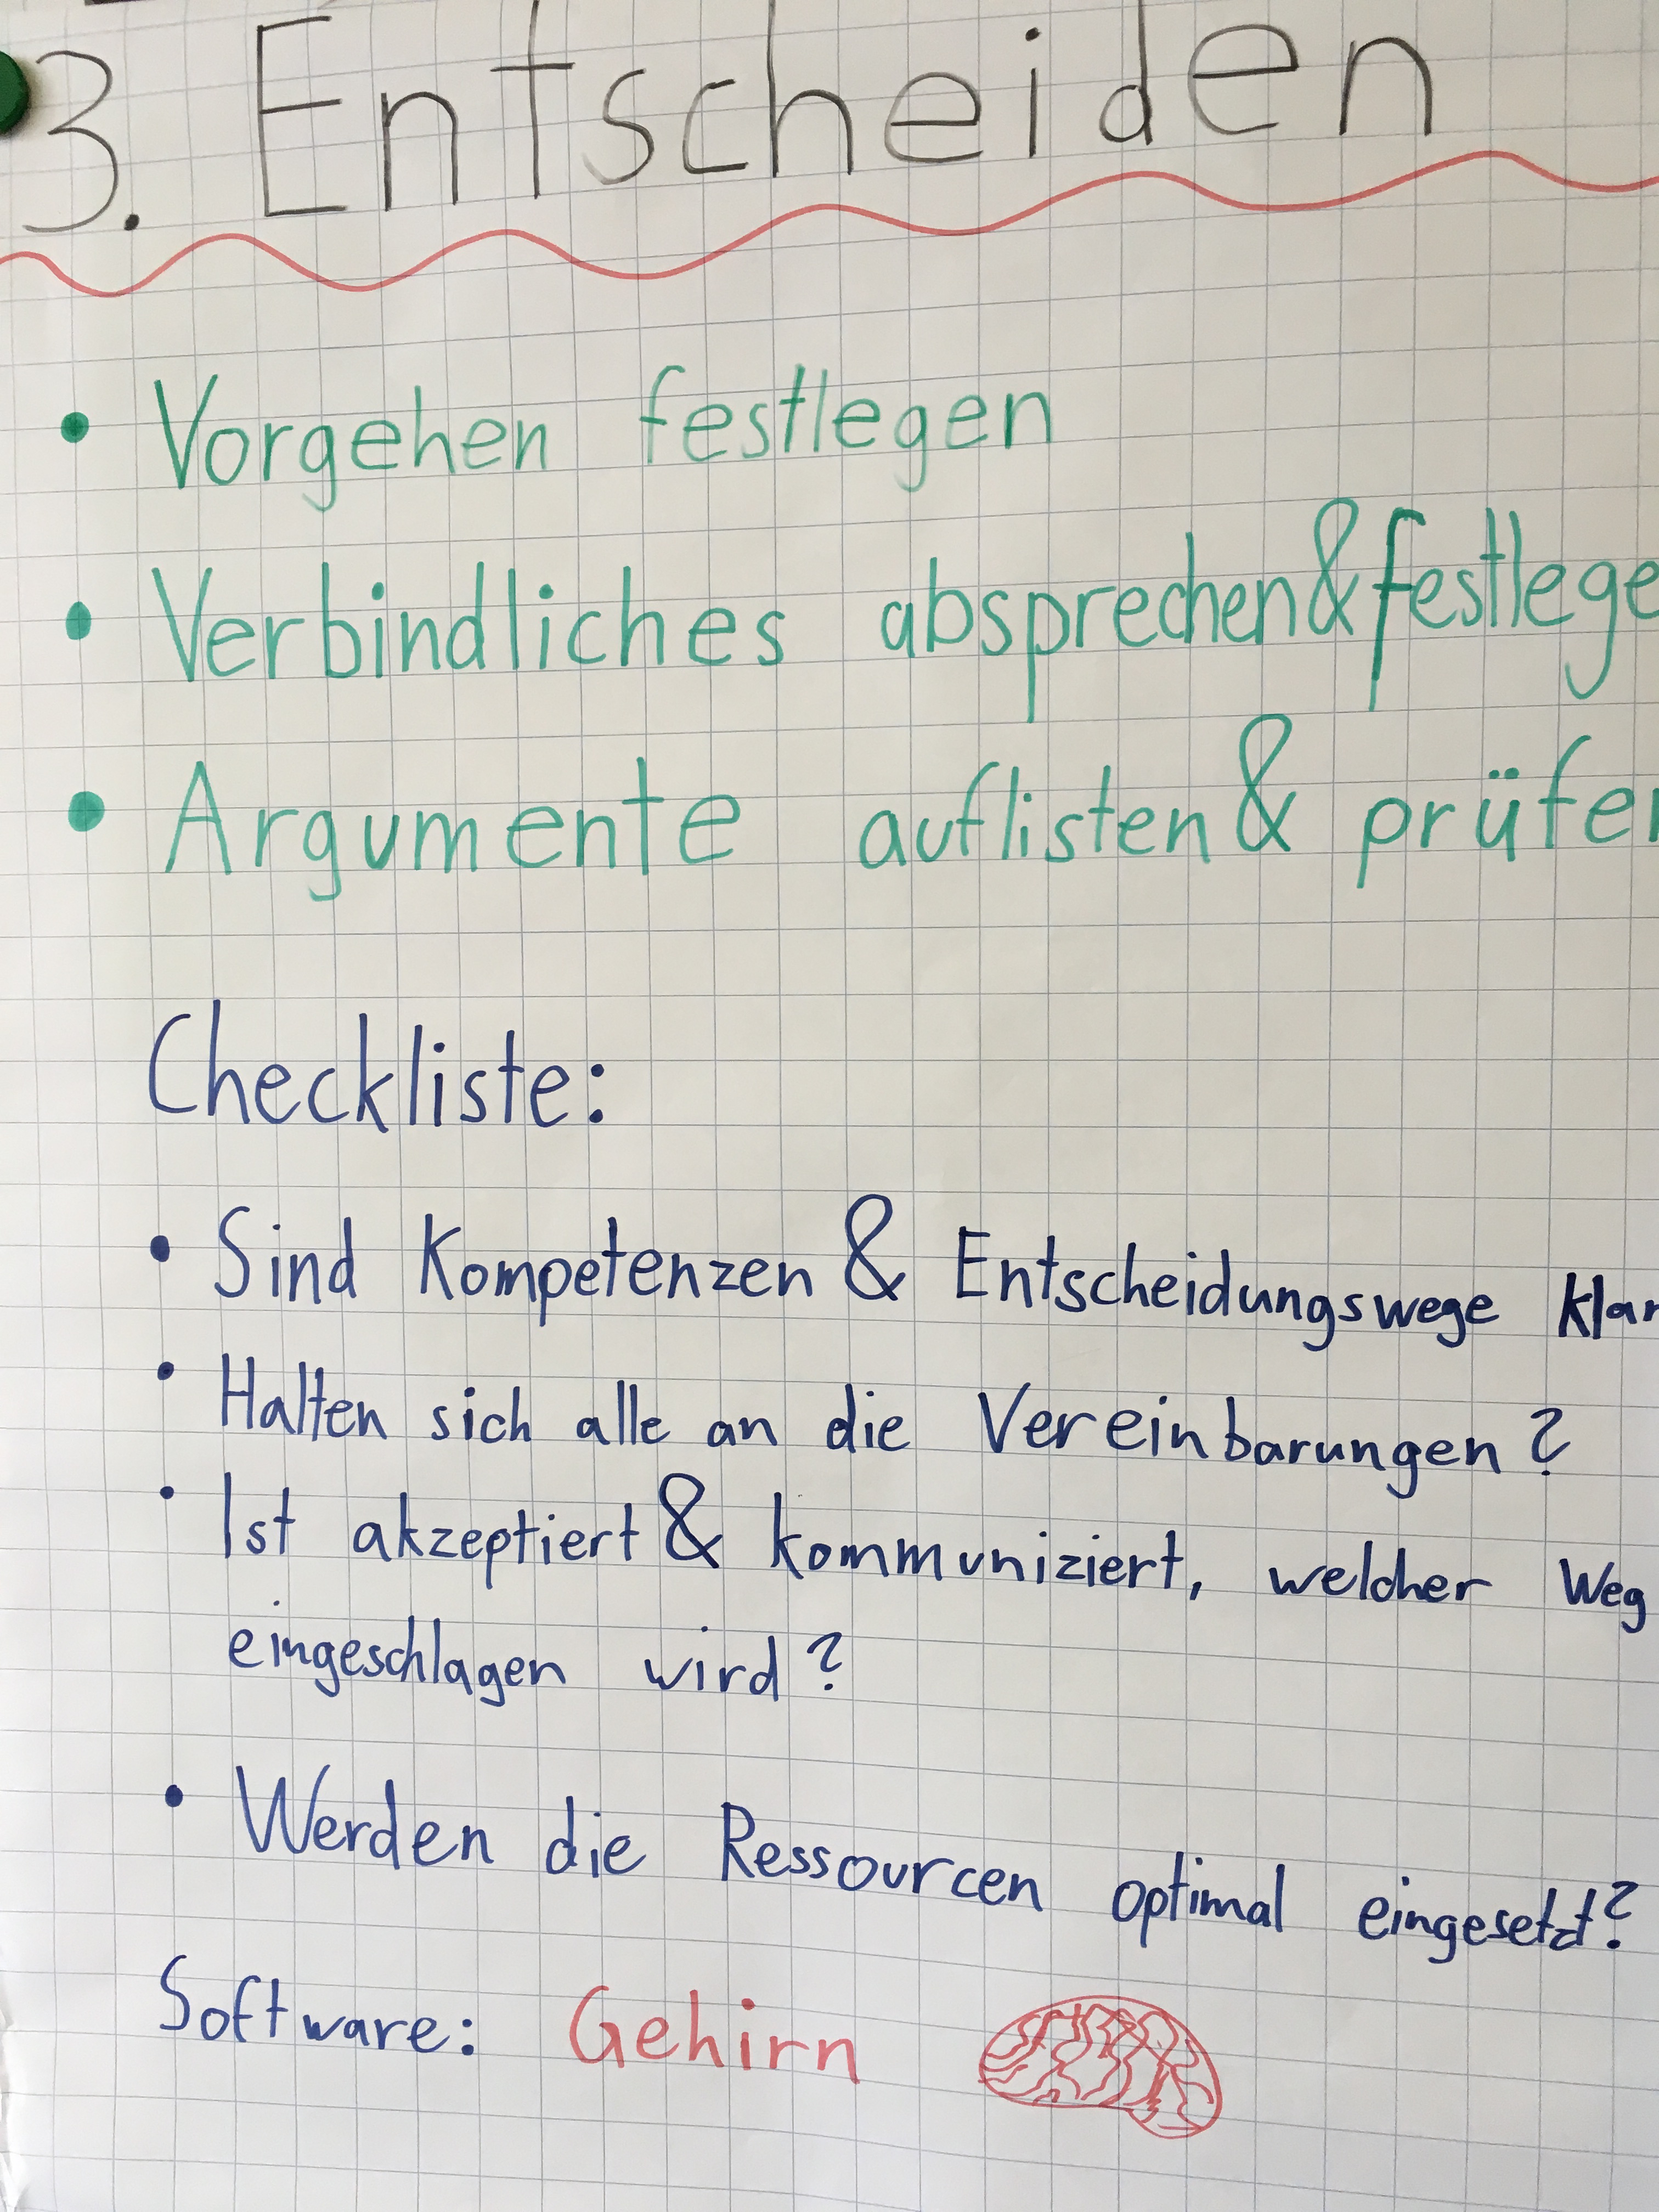 3. Entscheiden
• Vorgehen festlegen
• Verbindliches absprechen & festlege
• Argumente auflisten & prüfen
Checkliste:
• Sind Kompetenzen & Entscheidungswege klar
• Halten sich alle an die Vereinbarungen?
• Ist akzeptiert & kommuniziert, welcher Weg
eingeschlagen wird?
• Werden die Ressourcen optimal eingesetzt?
Software: Gehirn